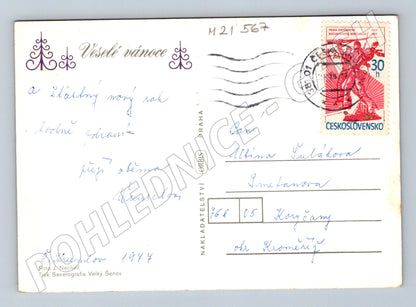 M21 567
Veselé vánoce
a šťastný nový rok
hodně zdraví
přejí oběma
1977
Foto J. Nechvíl
Tisk Severografia Velký Šenov
NAKLADATELSTVÍ ORBIS PRAHA
30 h
ČESKOSLOVENSKO
Albína Šuláková
Smetanova
768 05 Koryčany
okr. Kroměříž
POHLEDNICE